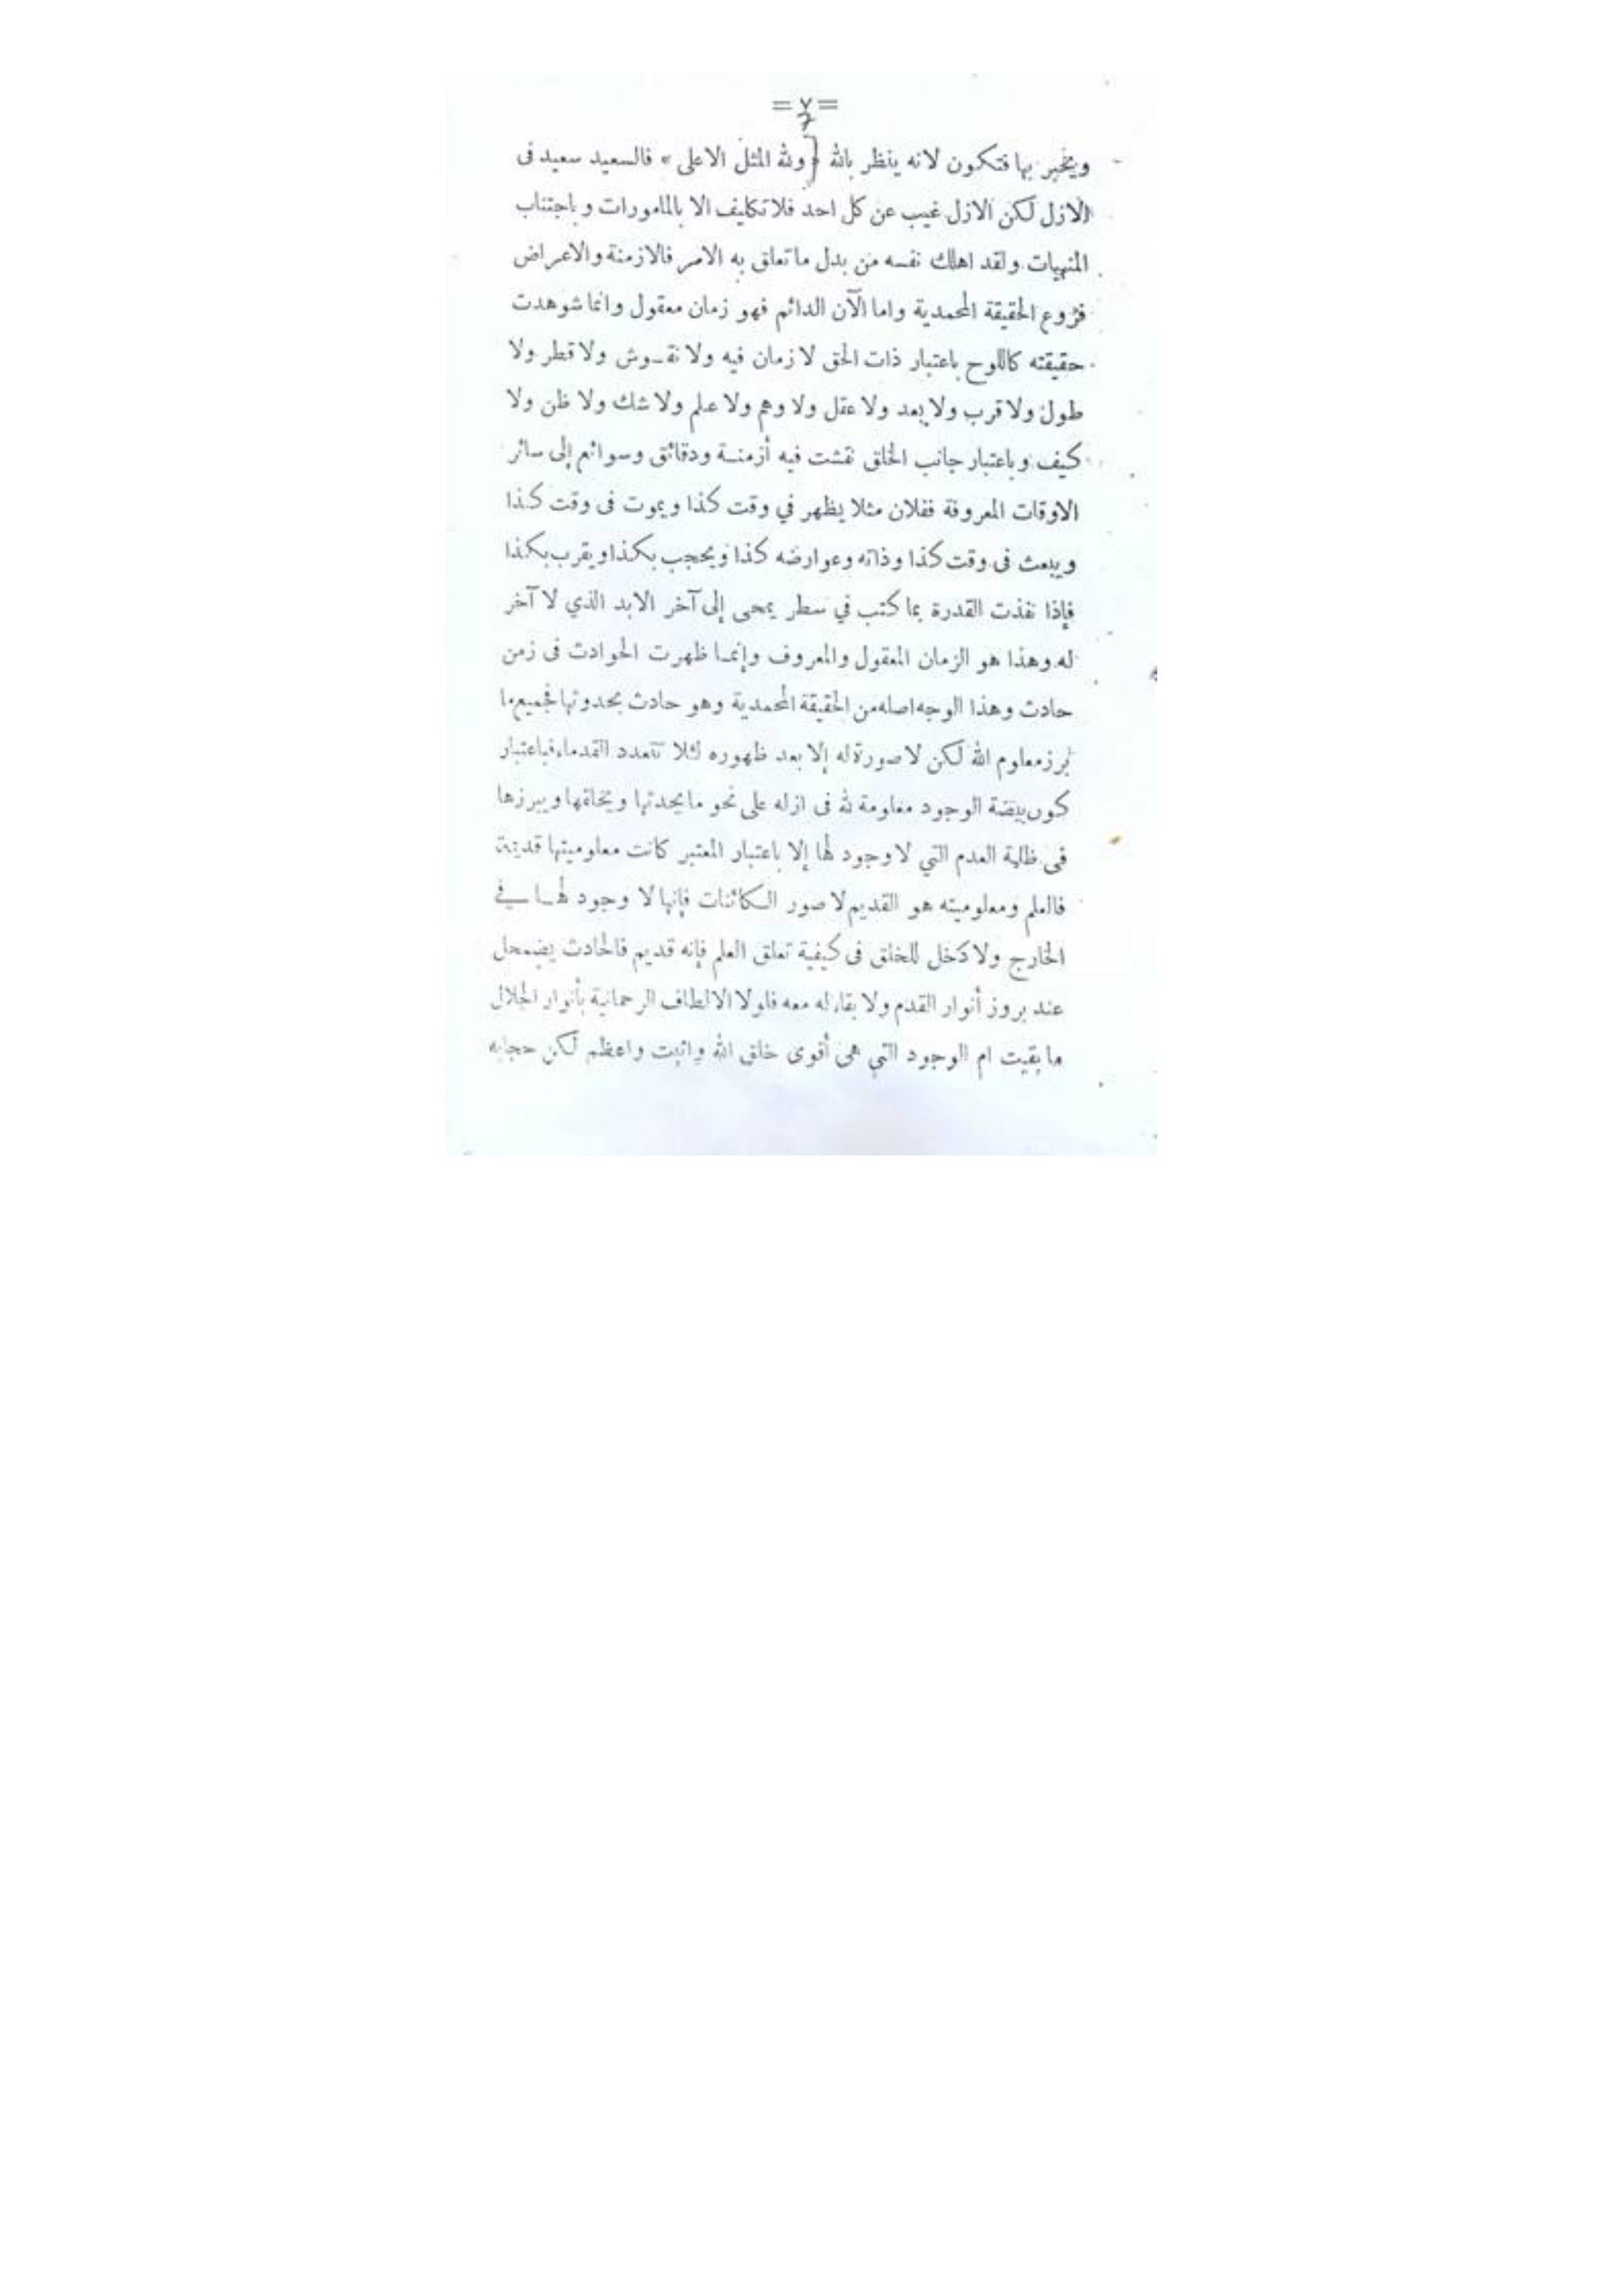 = ٧ =
ويخبر بها فتكون لانه ينظر بالله «ولله المثل الاعلى» فالسعيد سعيد فى
الازل لكن الازل غيب عن كل احد فلا تكليف الا بالمامورات و باجتناب
المنهيات ولقد اهلك نفسه من بدل ما تعلق به الامر فالازمنة والاعراض
فروع الحقيقة المحمدية واما الآن الدائم فهو زمان معقول وانما شوهدت
حقيقته كاللوح باعتبار ذات الحق لا زمان فيه ولا نقوش ولا قطر ولا
طول ولا قرب ولا بعد ولا عقل ولا وهم ولا علم ولا شك ولا ظن ولا
كيف وباعتبار جانب الخلق نقشت فيه أزمنة ودقائق وسوائع إلى سائر
الاوقات المعروفة ففلان مثلا يظهر في وقت كذا ويموت فى وقت كذا
ويبعث فى وقت كذا وذاته وعوارضه كذا ويحجب بكذا ويقرب بكذا
فإذا نفذت القدرة بما كتب في سطر يمحى إلى آخر الابد الذي لا آخر
له وهذا هو الزمان المعقول والمعروف وإنما ظهرت الحوادث فى زمن
حادث وهذا الوجه اصله من الحقيقة المحمدية وهو حادث بحدوثها فجميع ما
برز معلوم الله لكن لا صورة له إلا بعد ظهوره لئلا تتعدد القدماء فباعتبار
كون بيضة الوجود معلومة لله فى ازله على نحو ما يحدثها ويخلقها ويبرزها
فى ظلمة العدم التي لا وجود لها إلا باعتبار المعتبر كانت معلوميتها قديمة
فالعلم ومعلوميته هو القديم لا صور الكائنات فإنها لا وجود لها في
الخارج ولا دخل للخلق فى كيفية تعلق العلم فإنه قديم فالحادث يضمحل
عند بروز أنوار القدم ولا بقاء له معه فلولا الالطاف الرحمانية بأنوار الجلال
ما بقيت ام الوجود التي هى أقوى خلق الله واثبت واعظم لكن حجابه